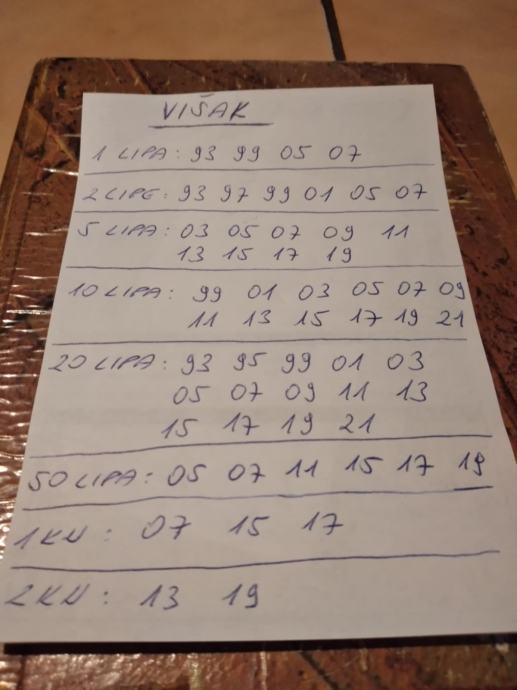 VIŠAK
1 LIPA: 93 99 05 07
2 LIPE: 93 97 99 01 05 07
5 LIPA: 03 05 07 09 11
13 15 17 19
10 LIPA: 99 01 03 05 07 09
11 13 15 17 19 21
20 LIPA: 93 95 99 01 03
05 07 09 11 13
15 17 19 21
50 LIPA: 05 07 11 15 17 19
1 KN: 07 15 17
2 KN: 13 19